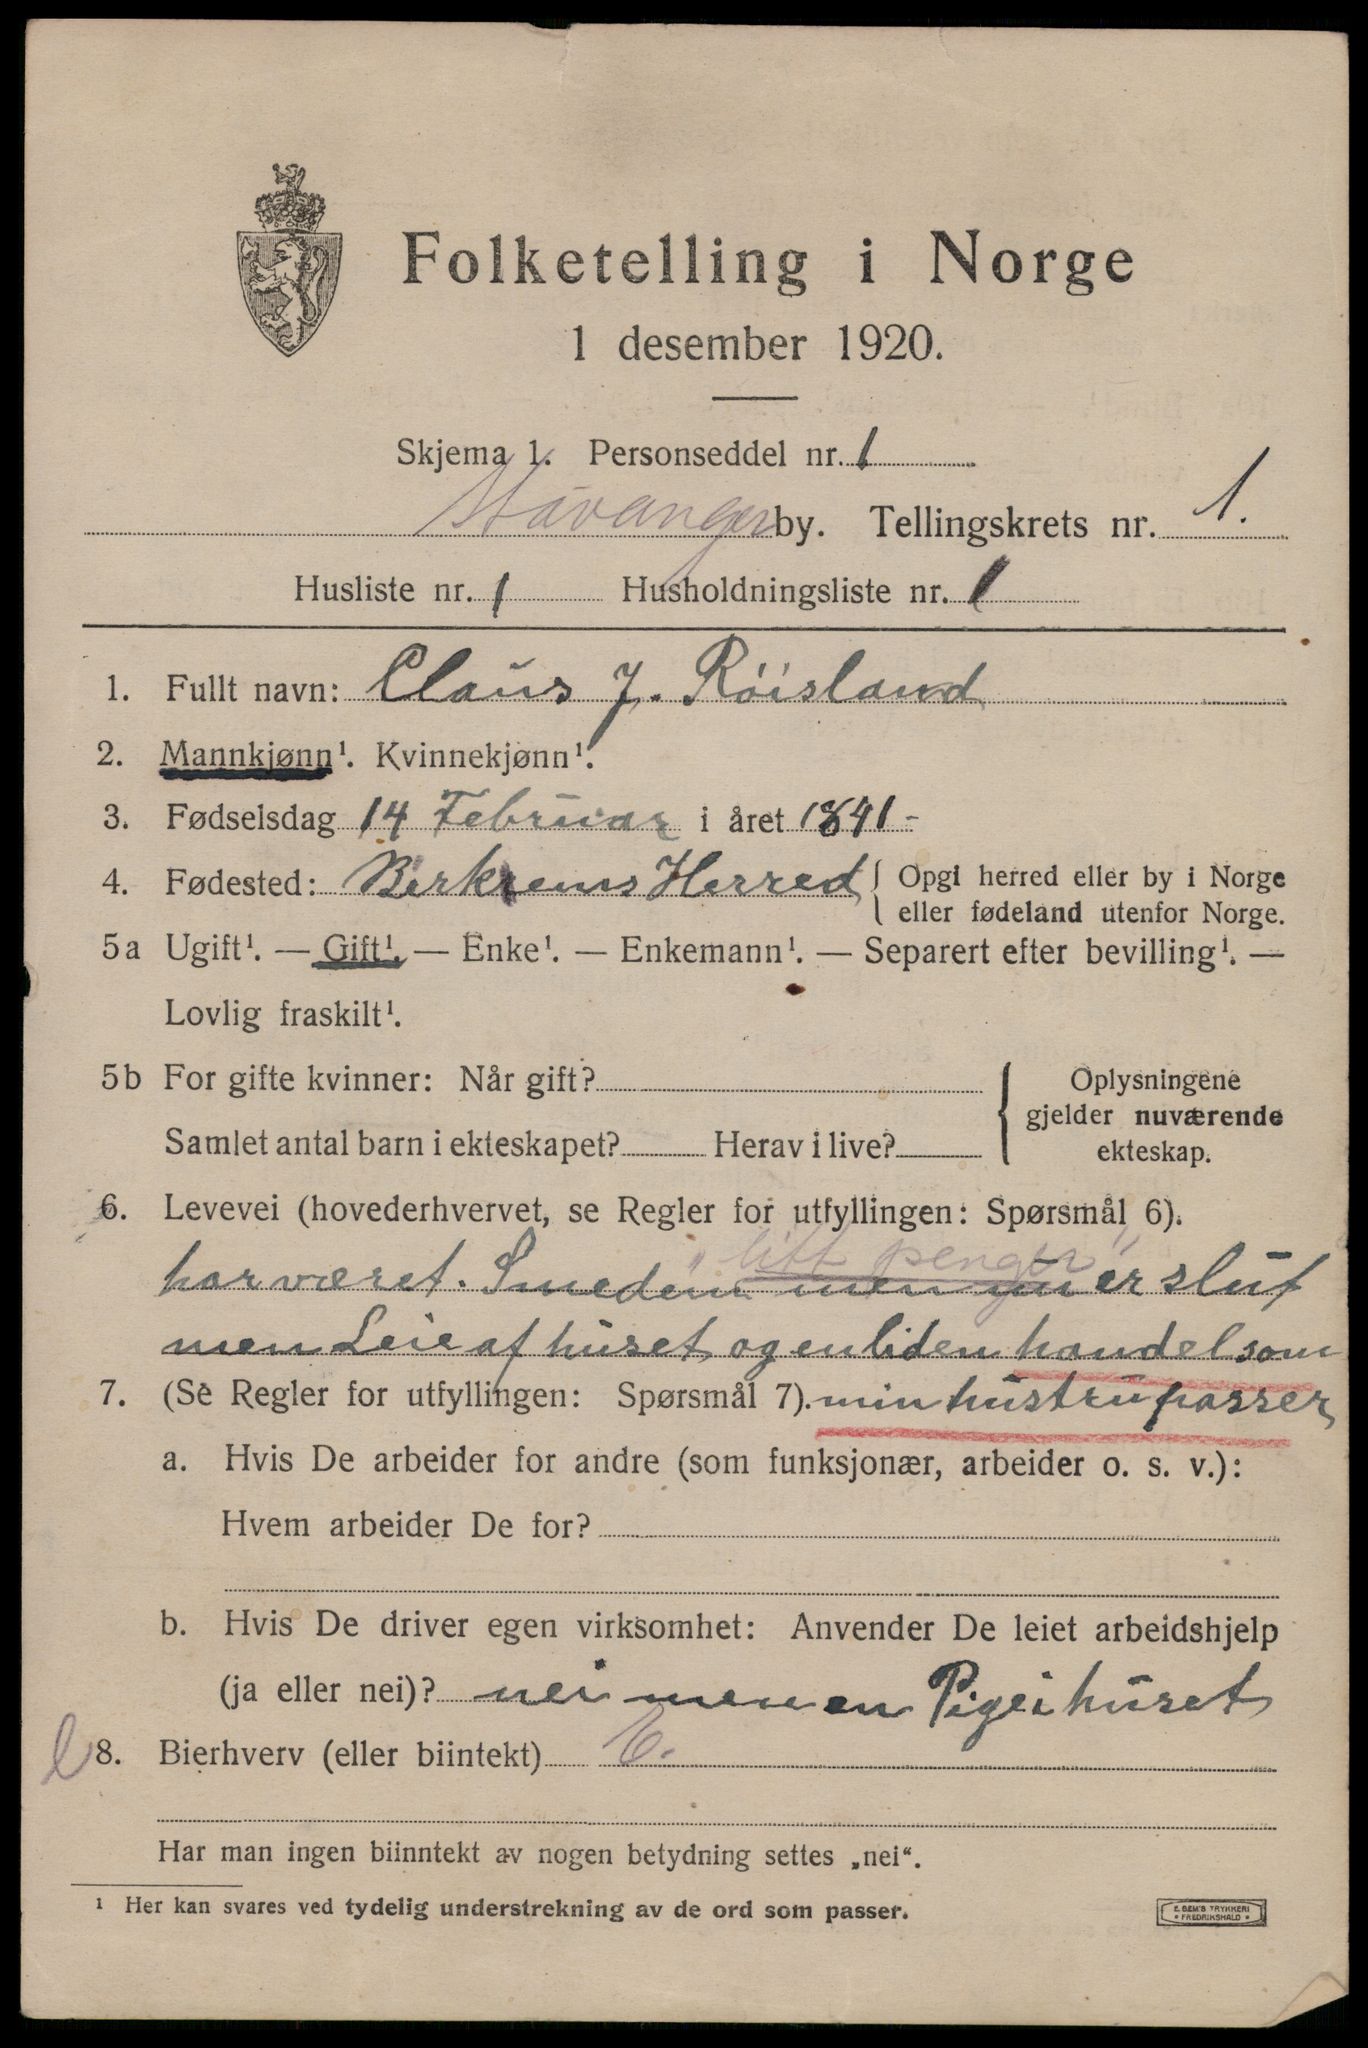 Folketelling i Norge
1 desember 1920.
Skjema 1. Personseddel nr. 1
Stavanger by. Tellingskrets nr. 1.
Husliste nr. 1 Husholdningsliste nr. 1
1. Fullt navn: Claus J. Röisland
2. Mannkjønn¹. Kvinnekjønn¹.
3. Fødselsdag 14 Februar i året 1841-
4. Fødested: Birkrems Herred { Opgi herred eller by i Norge
eller fødeland utenfor Norge.
5a Ugift¹. — Gift¹. — Enke¹. — Enkemann¹. — Separert efter bevilling¹. —
Lovlig fraskilt¹.
5b For gifte kvinner: Når gift?
Samlet antal barn i ekteskapet? Herav i live?
{ Oplysningene
gjelder nuværende
ekteskap.
6. Levevei (hovederhvervet, se Regler for utfyllingen: Spørsmål 6).
"litt penger"
har været. Smeden men nu er slut
men Leie af huset og en liden handel som
7. (Se Regler for utfyllingen: Spørsmål 7). min hustru passer
a. Hvis De arbeider for andre (som funksjonær, arbeider o. s. v.):
Hvem arbeider De for?
b. Hvis De driver egen virksomhet: Anvender De leiet arbeidshjelp
(ja eller nei)? nei men en Pige i huset
8. Bierhverv (eller biintekt)
Har man ingen biinntekt av nogen betydning settes „nei".
¹ Her kan svares ved tydelig understrekning av de ord som passer.
E. SEM'S TRYKKERI
• FREDRIKSHALD •